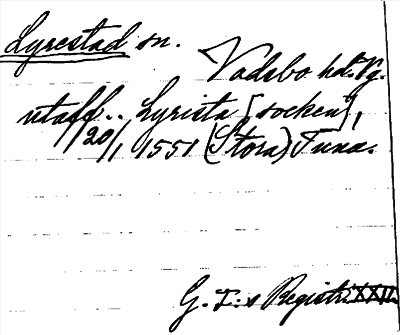 Lyrestad sn.
Vadsbo hd. Vg.
utaff .. Lyrista [socken],
20/1 1551 (Stora) Tuna.
G. I:s Registr. XXII